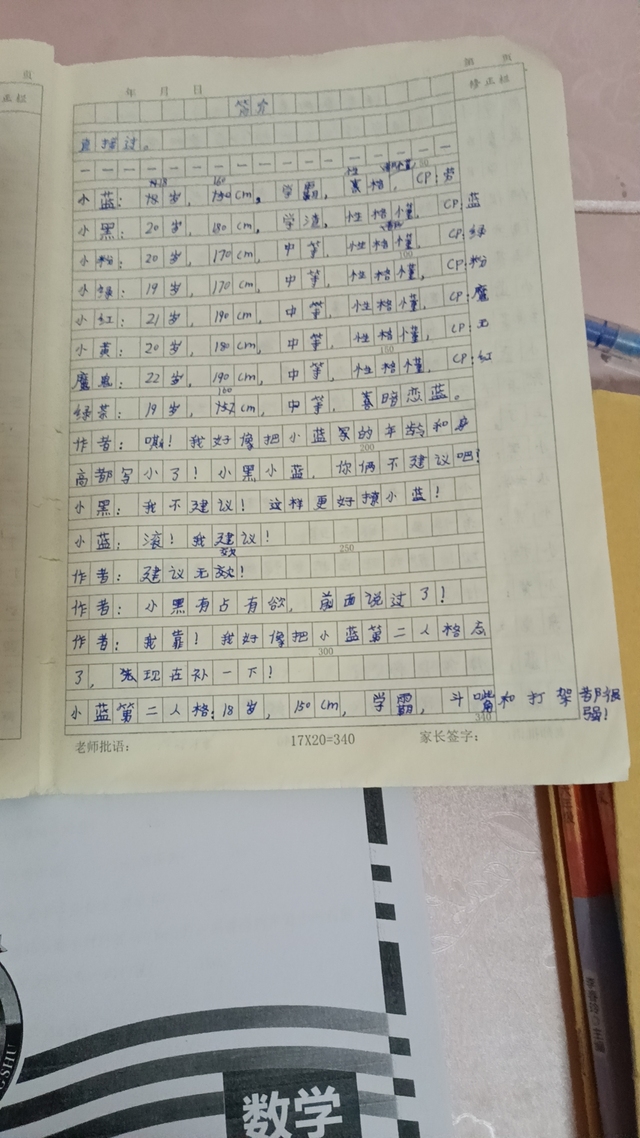 页
正栏
年 月 日
第 页
修正栏
简介
直接过。
小蓝：18岁，150cm，学霸，性格，CP:
160
50
小黑：20岁，180cm，学渣，性格懂，CP:蓝
小粉：20岁，170cm，中等，性格懂，CP:绿
100
小绿：19岁，170cm，中等，性格懂，CP:粉
小红：21岁，190cm，中等，性格懂，CP:魔
小黄：20岁，180cm，中等，性格懂，CP:
150
魔：22岁，190cm，中等，性格懂，CP:红
160
绿茶：19岁，cm，中等，喜暗恋蓝。
作者：嘶！我好像把小蓝家的年龄和身
200
高都写小了！小黑小蓝，你俩不建议吧！
小黑：我不建议！这样更好撩小蓝！
小蓝：滚！我建议！
250
作者：建议无效！
作者：小黑有占有欲，前面说过了！
作者：我靠！我好像把小蓝第二人格忘
300
了，先现在补一下！
小蓝第二人格：18岁，150cm，学霸，斗嘴和打架都很
强！
340
老师批语： 17X20=340 家长签字：
数学